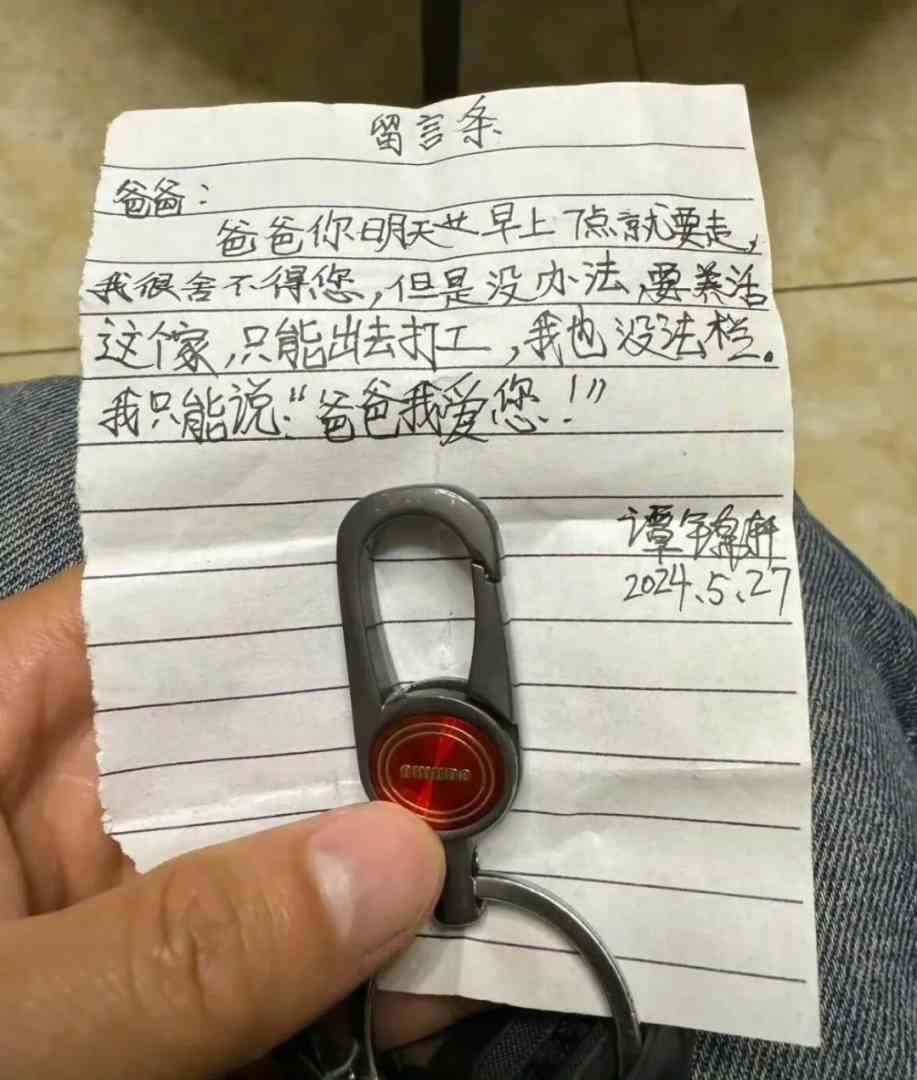 留言条
爸爸：
爸爸你明天早上7点就要走，
我很舍不得您，但是没办法，要养活
这个家，只能出去打工，我也没法拦。
我只能说：“爸爸我爱您！”
谭
2024.5.27